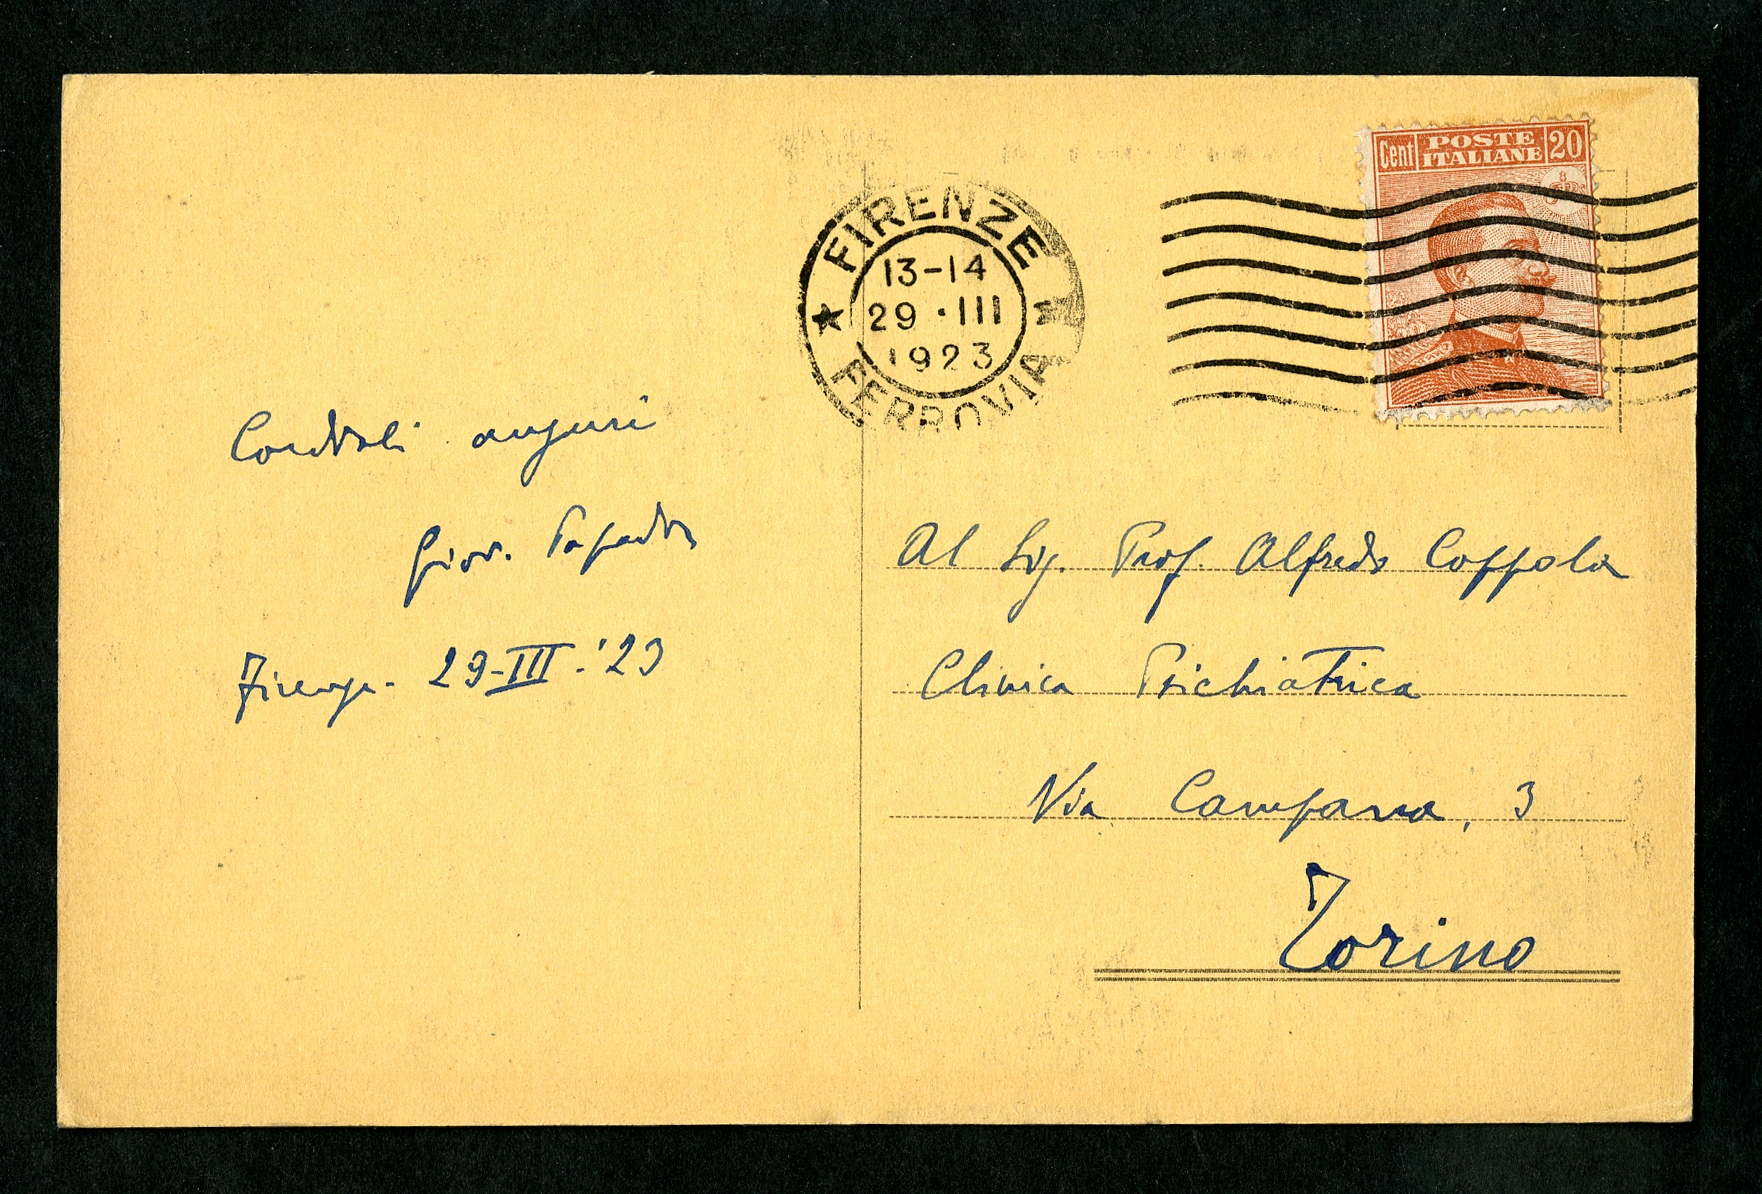 Cent POSTE ITALIANE 20
FIRENZE
13-14
29 · III
1923
FERROVIA
Cordiali auguri
Giov.
Firenze - 29-III-'23
Al Sig. Prof. Alfredo Coppola
Clinica Psichiatrica
Via Campana, 3
Torino